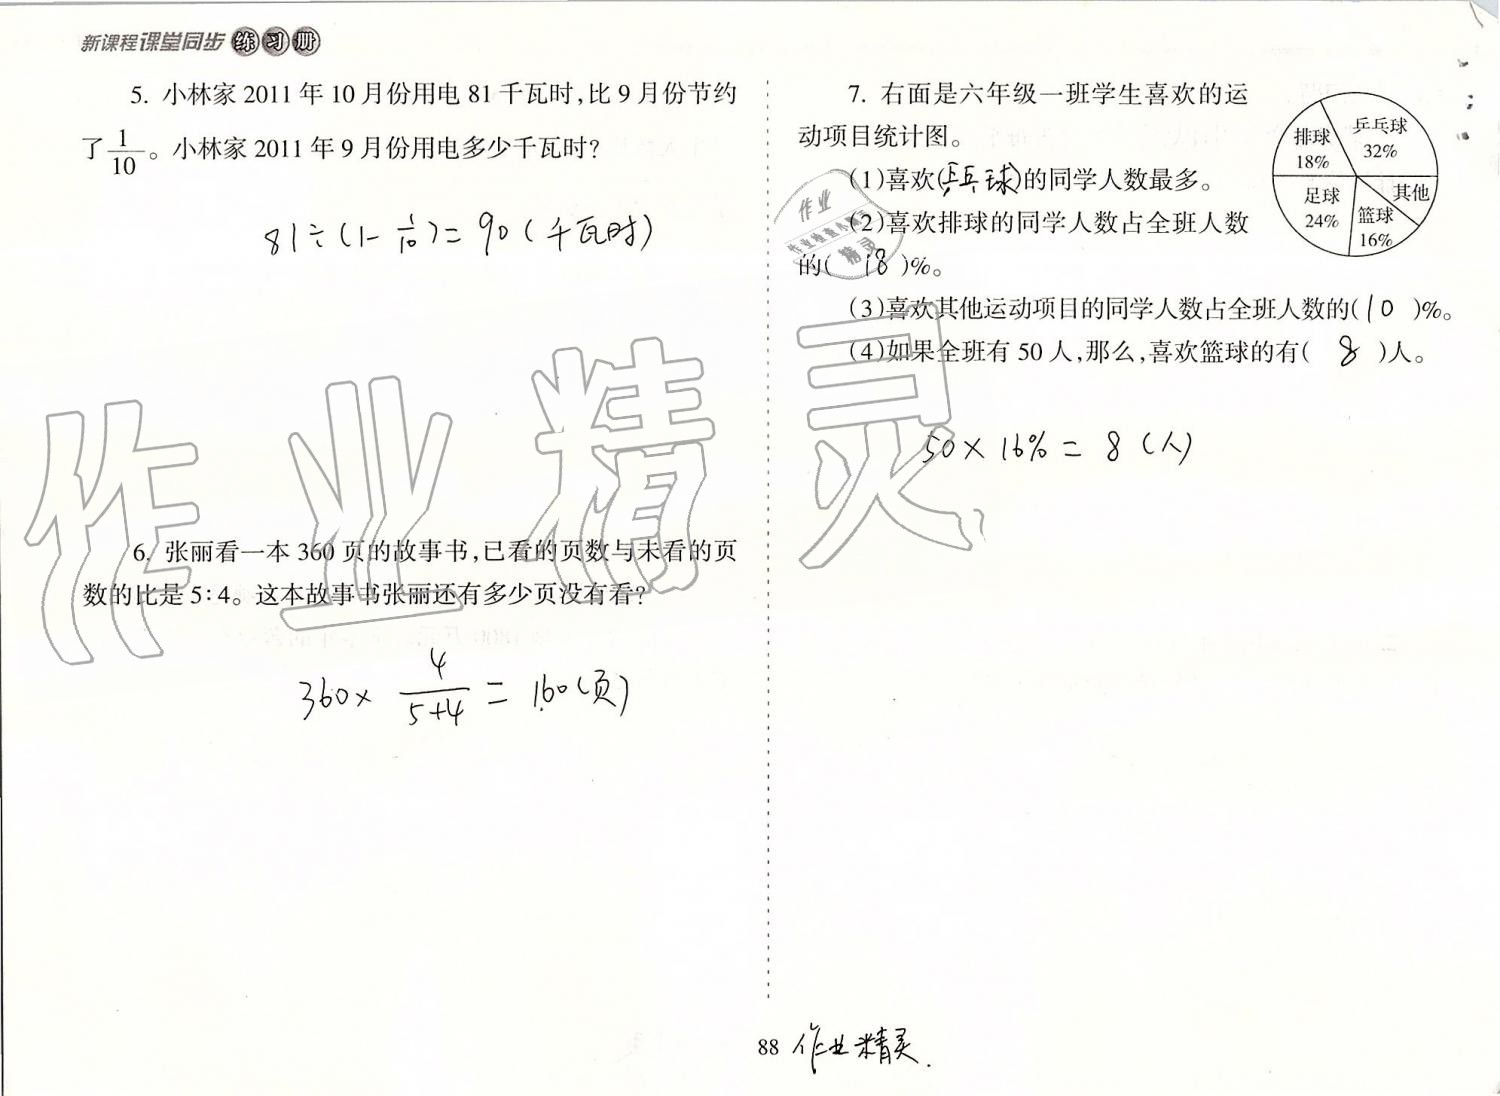 新课程课堂同步练习册
5. 小林家 2011 年 10 月份用电 81 千瓦时,比 9 月份节约
了 1/10 。小林家 2011 年 9 月份用电多少千瓦时?
81÷(1-1/10)=90(千瓦时)
6. 张丽看一本 360 页的故事书,已看的页数与未看的页
数的比是 5∶4。这本故事书张丽还有多少页没有看?
360× 4/(5+4) = 160(页)
7. 右面是六年级一班学生喜欢的运
动项目统计图。
(1)喜欢(乒乓球)的同学人数最多。
(2)喜欢排球的同学人数占全班人数
的( 18 )%。
(3)喜欢其他运动项目的同学人数占全班人数的(10 )%。
(4)如果全班有 50 人,那么,喜欢篮球的有( 8 )人。
50×16%=8(人)
排球
18%
乒乓球
32%
足球
24%
篮球
16%
其他
作业
精灵
作业精灵
88 作业精灵.